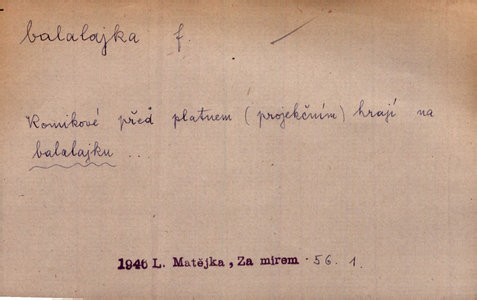 balalajka f.
Komikové před platnem (projekčním) hrají na
balalajku ...
1946 L. Matějka, Za mirem . 56. 1.